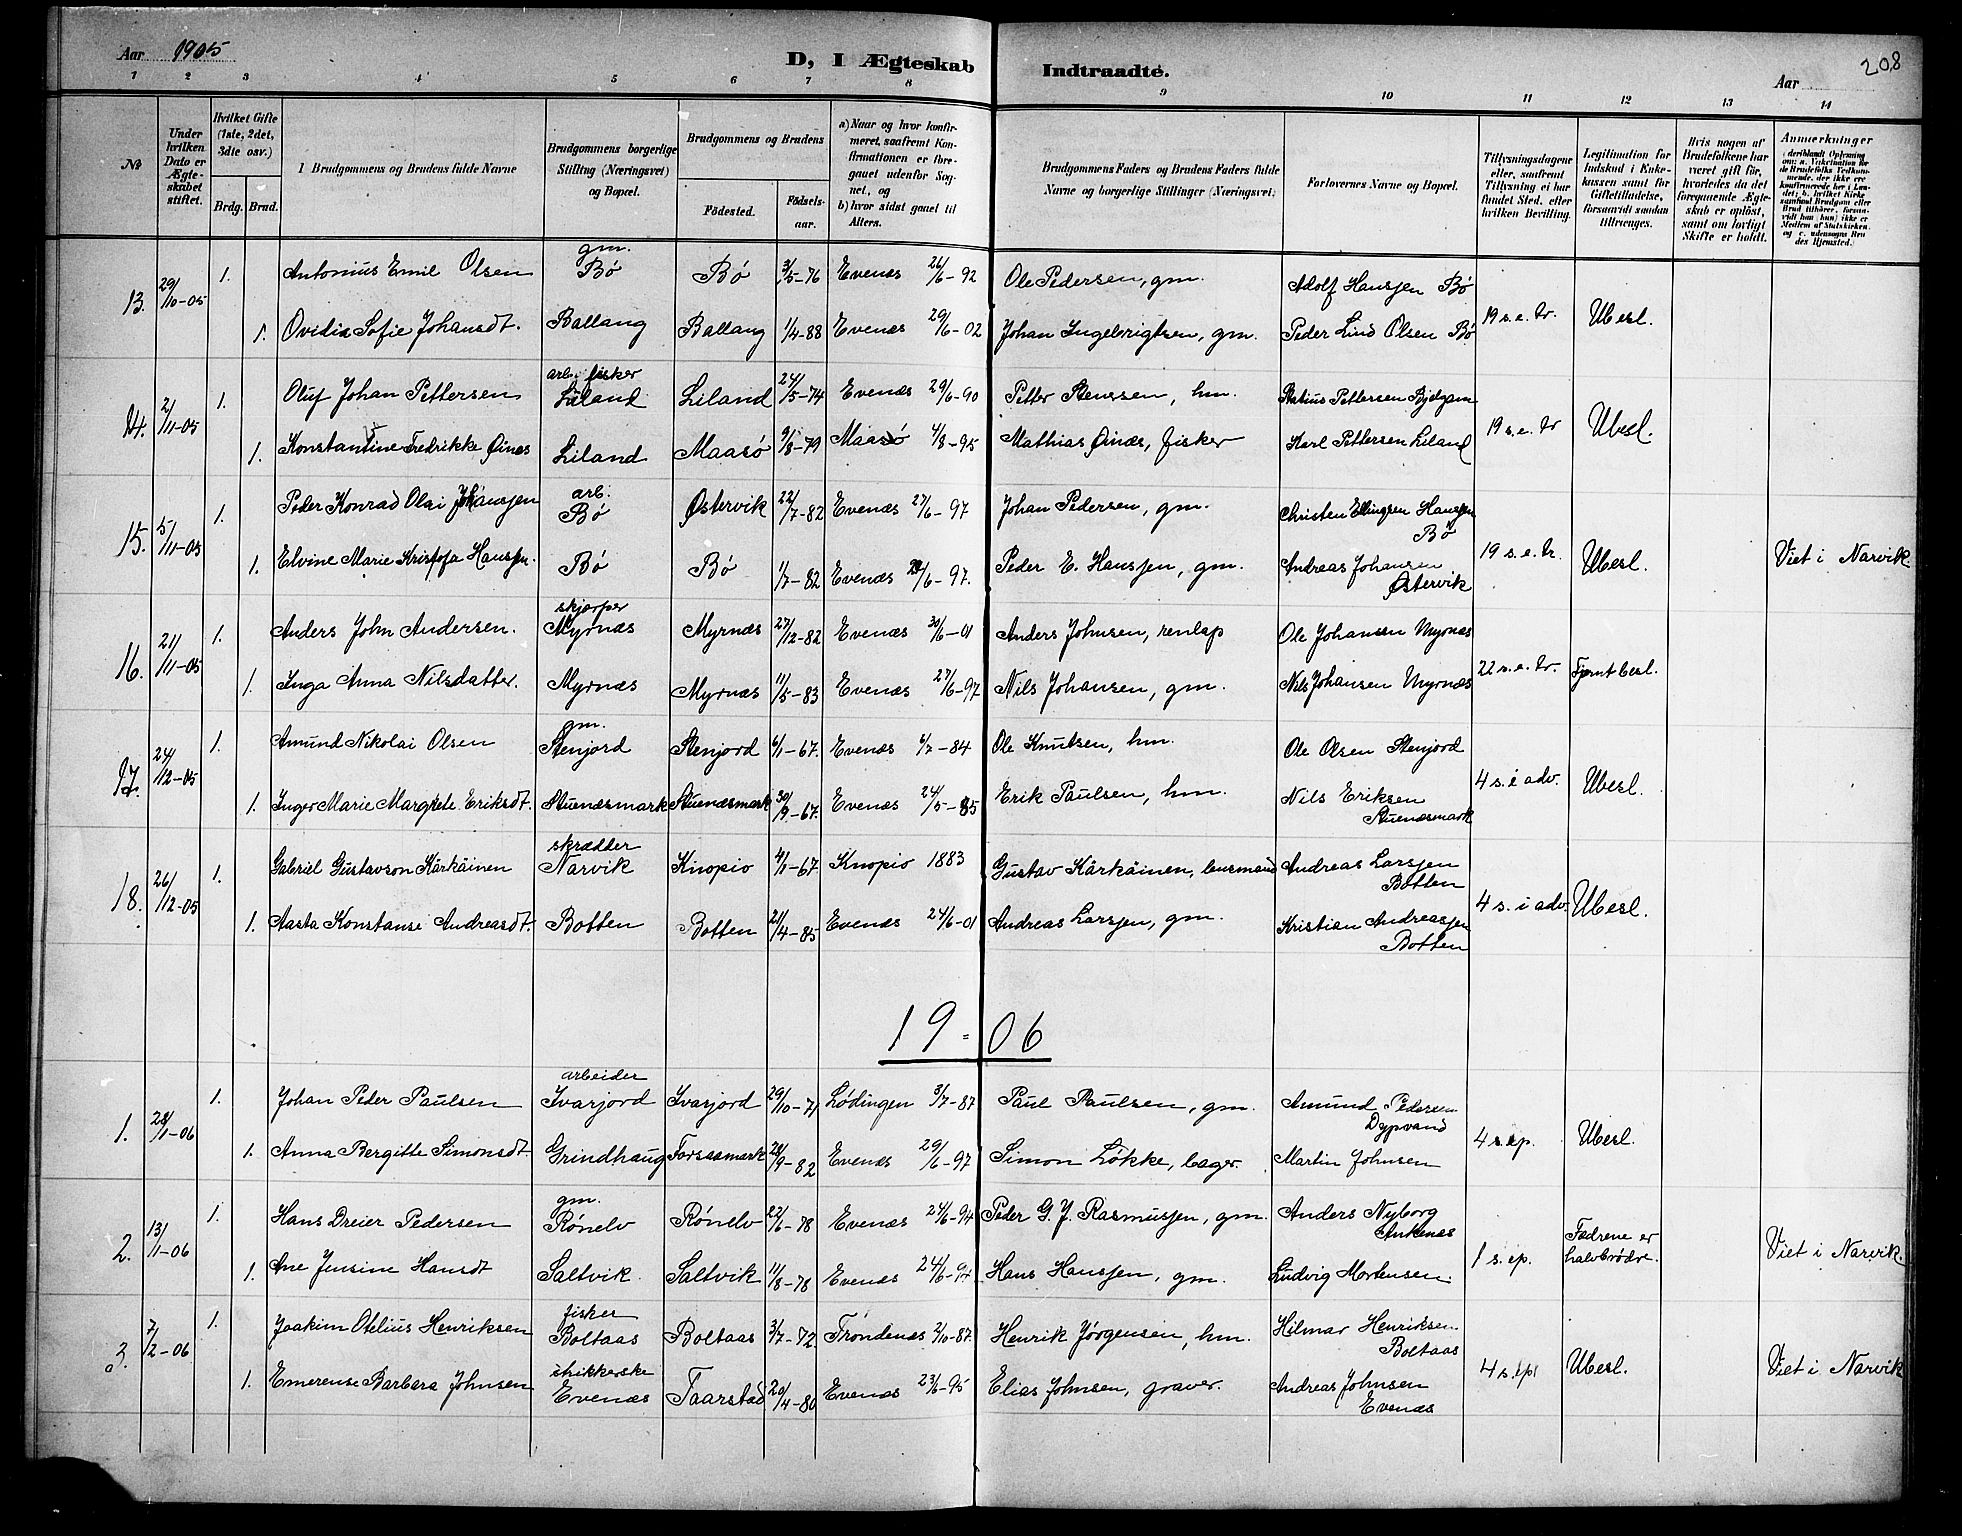 Aar 1905
D, I Ægteskab Indtraadte.
Aar
208
1 2 3 4 5 6 7 8 9 10 11 12 13 14
№
Under hvilken Dato er Ægteskabet stiftet.
Hvilket Gifte (1ste, 2det, 3die osv.)
Brdg. Brud.
1 Brudgommens og Brudens fulde Navne
Brudgommens borgerlige Stilling (Næringsvei) og Bopæl.
Brudgommens og Brudens
Fødested. Fødselsaar.
a) Naar og hvor konfirmeret, saafremt Konfirmationen er foregaaet udenfor Sognet, og
b) hvor sidst gaaet til Alters.
Brudgommens Faders og Brudens Faders fulde Navne og borgerlige Stillinger (Næringsvei)
Forlovernes Navne og Bopæl.
Tillysningsdagene eller, saafremt Tillysning ei har fundet Sted, efter hvilken Bevilling.
Legitimation for Indskud i Enkekassen samt for Giftetilladelse, forsaavidt saadan tiltrænges.
Hvis nogen af Brudefolkene har været gift før, hvorledes da det foregaaende Ægteskab er opløst, samt om lovligt Skifte er holdt.
Anmærkninger
13. 29/10-05 1. Antonius Emil Olsen gm. Bø Bø 3/5-76 Evenæs 26/6-92 Ole Pedersen, gm. Adolf Hansjen Bø
1. Ovidia Sofie Johansdt. Ballang Ballang 1/4-88 Evenæs 29/6-02 Johan Ingebrigtsen, gm. Peder Lind Olsen Bø 19 s.e. tr. Ubesl.
14. 2/11-05 1. Oluf Johan Pettersen arb. fisker Liland Liland 24/5-74 Evenæs 29/6-90 Petter Stenssen, hm. Pettersen
1. Konstantine Fredrikke Øines Liland Maasø 9/8-79 Maasø 4/8-95 Mathias Øinæs, fisker Karl Pettersen Liland 19 s.e. tr Ubesl.
15. 5/11-05 1. Peder Konrad Olai Johansjen arb. Bø Østervik 22/7-82 Evenæs 27/6-97 Johan Pedersen, gm. Christen Ellingsen Hansjen Bø
1. Elvine Marie Kristofa Hansjen. Bø Bø 1/7-82 Evenæs 28/6-97. Peder E. Hansjen, gm. Andreas Johansen Østervik 19 s.e. tr. Ubesl. Viet i Narvik.
16. 21/11-05 1. Anders John Andersen. skjærper Myrnæs Myrnæs 27/12-82 Evenæs 30/6-01 Anders Johnsen, renlap Ole Johansen Myrnæs
1. Inga Anna Nilsdatter. Myrnæs Myrnæs 11/5-83 Evenæs 27/6-97 Nils Johansen, gm. Nils Johansen Myrnæs 22 s.e. tr.
17. 24/12-05 1. Amund Nikolai Olsen gm. Stenjord Stenjord 6/1-67. Evenæs 6/7-84 Ole Knutsen, hm. Ole Olsen Stenjord
1. Inger Marie Margrete Eriksdt. Stunæsmark Stunæsmark 30/9-67. Evenæs 24/5-85 Erik Paulsen, hm. Nils Eriksen Stuenæsmark 4 s. i adv. Ubesl.
18. 26/12-05 1. Gabriel Gustavson Kärkäinen skrædder Narvik Knopio 4/1-67 Knopio 1883 Gustav Kärkäinen, lensmand Andreas Larsjen Botten
1. Aasta Konstanse Andreasdt. Botten Botten 21/4-85 Evenæs 24/6-01 Andreas Larsjen, gm. Kristian Andreasjen Botten 4 s. i adv. Ubesl.
19-06
1. 28/1-06 1. Johan Peder Paulsen arbeider Ivarjord Ivarjord 29/10-71 Lødingen 3/7-87 Paul Paulsen, gm. Amund Pedersen Dypvand
1. Anna Bergitte Simonsdt Grindhaug Forsaamark 28/9-82 Evenæs 29/6-97 Simon Løkke, bager. Martin Johnsen 4 s. ep. Ubesl.
2. 13/1-06 1. Hans Dreier Pedersen gm. Rønelv Rønelv 22/6-78 Evenæs 24/6-94 Peder G. J. Rasmusjen, gm. Anders Nyborg Ankenæs
1. Ane Jensine Hansdt Saltvik. Saltvik 11/8-78 Evenæs 24/6-94 Hans Hansjen, gm. Ludvig Mortensen. 1 s. ep. Fædrene er halvbrødre. Viet i Narvik.
3. 7/2-06 1. Joakim Otelius Henriksen fisker Boltaas Boltaas 3/7-72. Trondenæs 2/10-87. Henrik Jørgensen, hm. Hilmar Henriksen Boltaas
1. Emerense Barbara Johnsen strikkerske Evenæs Taarstad 20/4-80 Evenæs 23/6-95 Elias Johnsen, graver. Andreas Johnsen Evenæs 4 s. ep. Ubesl. Viet i Narvik